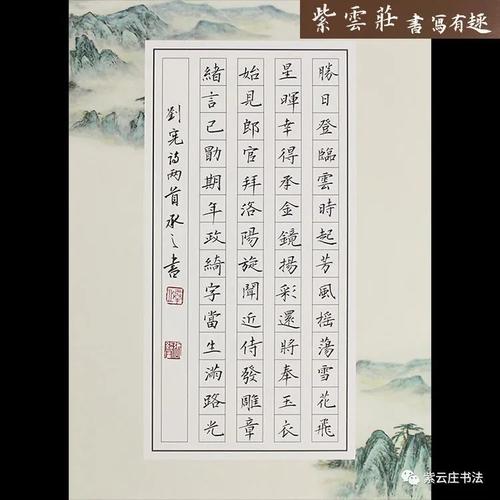 紫雲莊 書寫有趣
勝日登臨雲時起芳風摇蕩雪花飛
星暉幸得承金鏡揚彩還將奉玉衣
始見郎官拜洛陽旋聞近侍發雕章
緒言已勖期年政綺字當生滿路光
劉宪詩两首承之書
紫云庄书法